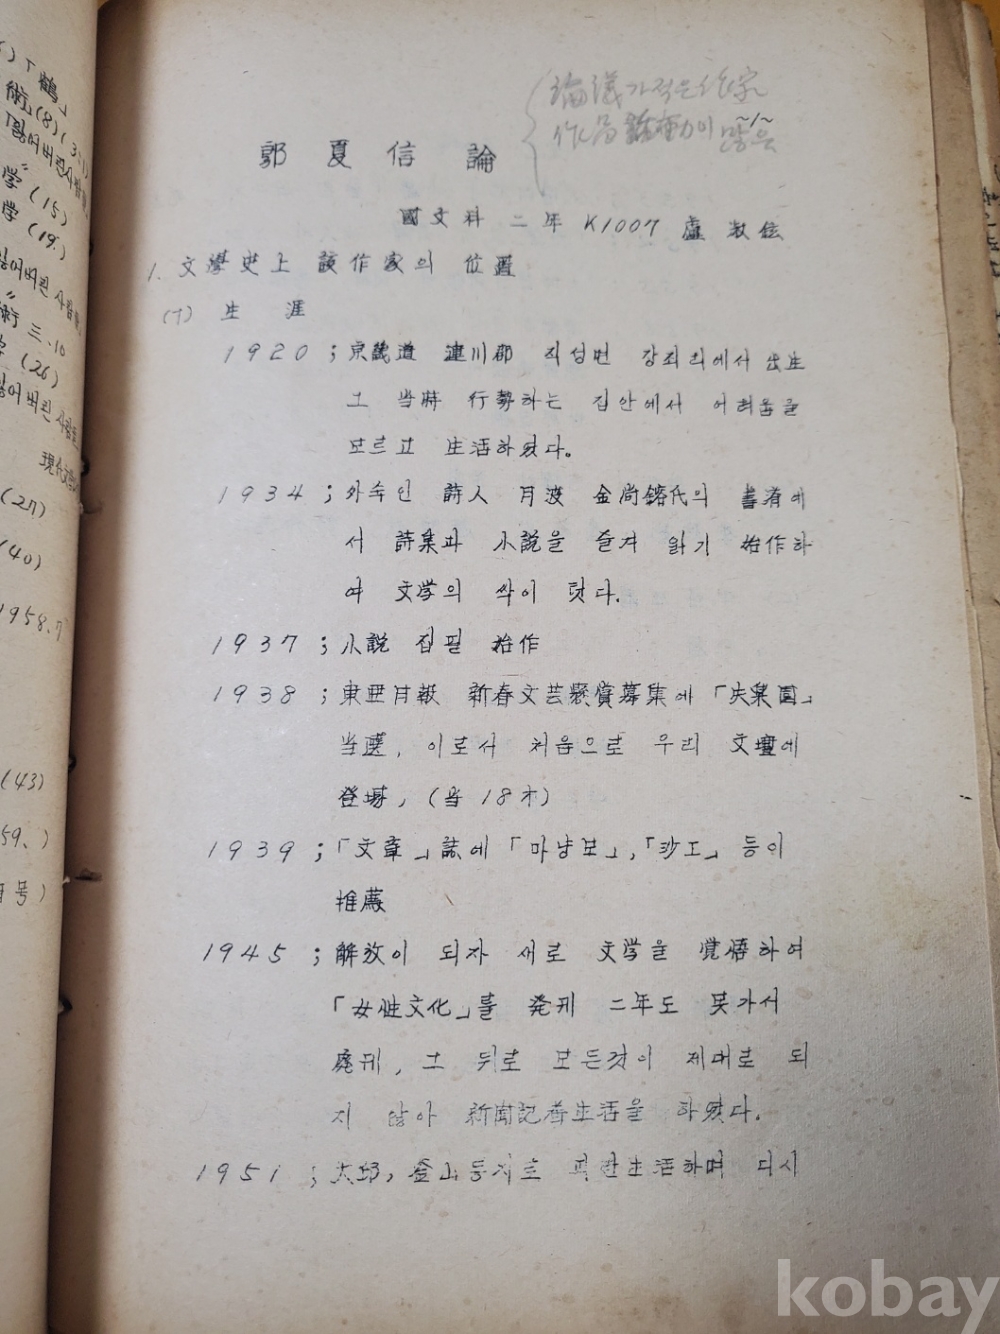 「鶴」
術」(8)(
「잃어버린사람들」
学" (15)
学 (19.)
잃어버린 사람들」
術" 三.10
(26)
잃어버린 사람들
現代文学
(27)
(40)
1958.7
(43)
59. )
号)
論議가 적은 作家
作品 이 많은
郭夏信論
國文科 二年 K1007 盧
1. 文學史上 該作家의 位置
(ㄱ) 生涯
1920 ; 京畿道 漣川郡 적성면 에서 出生
그 当時 行勢하는 집안에서 어려움을
모르고 生活하였다.
1934 ; 外숙인 詩人 月波 金尚鎔氏의 書斎에
서 詩集과 小説을 즐겨 읽기 始作하
여 文学의 싹이 텃다.
1937 ; 小説 집필 始作
1938 ; 東亜日報 新春文芸懸賞募集에 「失楽園」
当選, 이로서 처음으로 우리 文壇에
登場, (当 18才)
1939 ; 「文章」誌에 「마냥모」,「사공」 등이
推薦
1945 ; 解放이 되자 새로 文学을 覚悟하여
「女性文化」를 発刊 二年도 못가서
廃刊, 그 뒤로 모든것이 제대로 되
지 않아 新聞記者生活을 하였다.
1951 ; 大邱, 釜山등지로 피란生活하며 다시
kobay